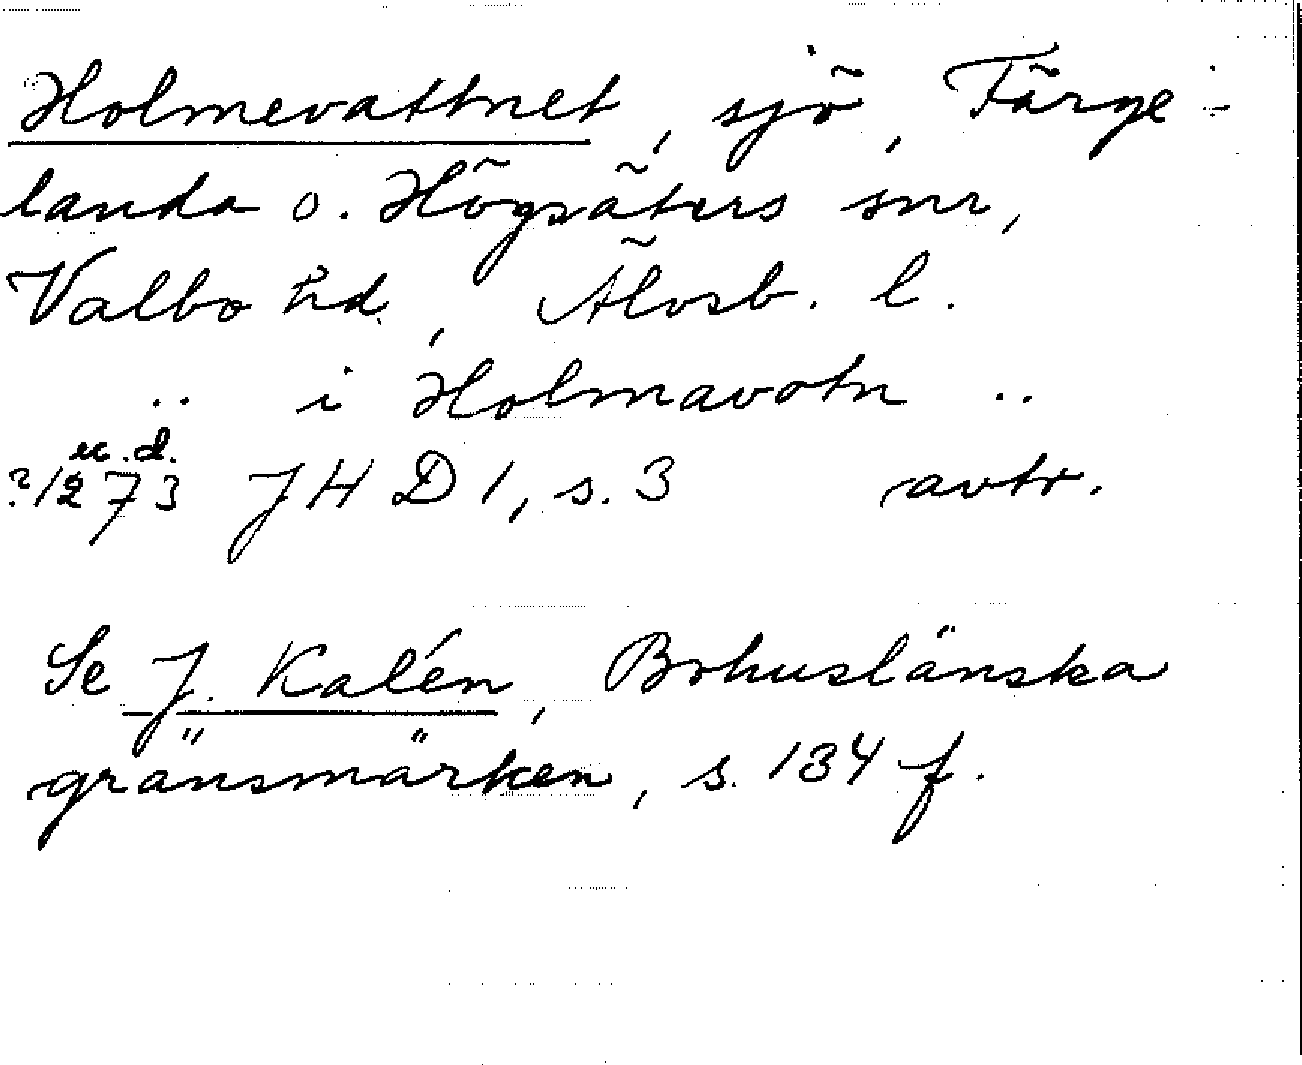 Holmevattnet, sjö, Färge-
landa o. Högsäters snr,
Valbo hd, Älvsb. l.
.. i Holmavotn ..
u.d.
?1273 JHD 1, s. 3 avtr.
Se J. Kalén, Bohuslänska
gränsmärken, s. 134 f.